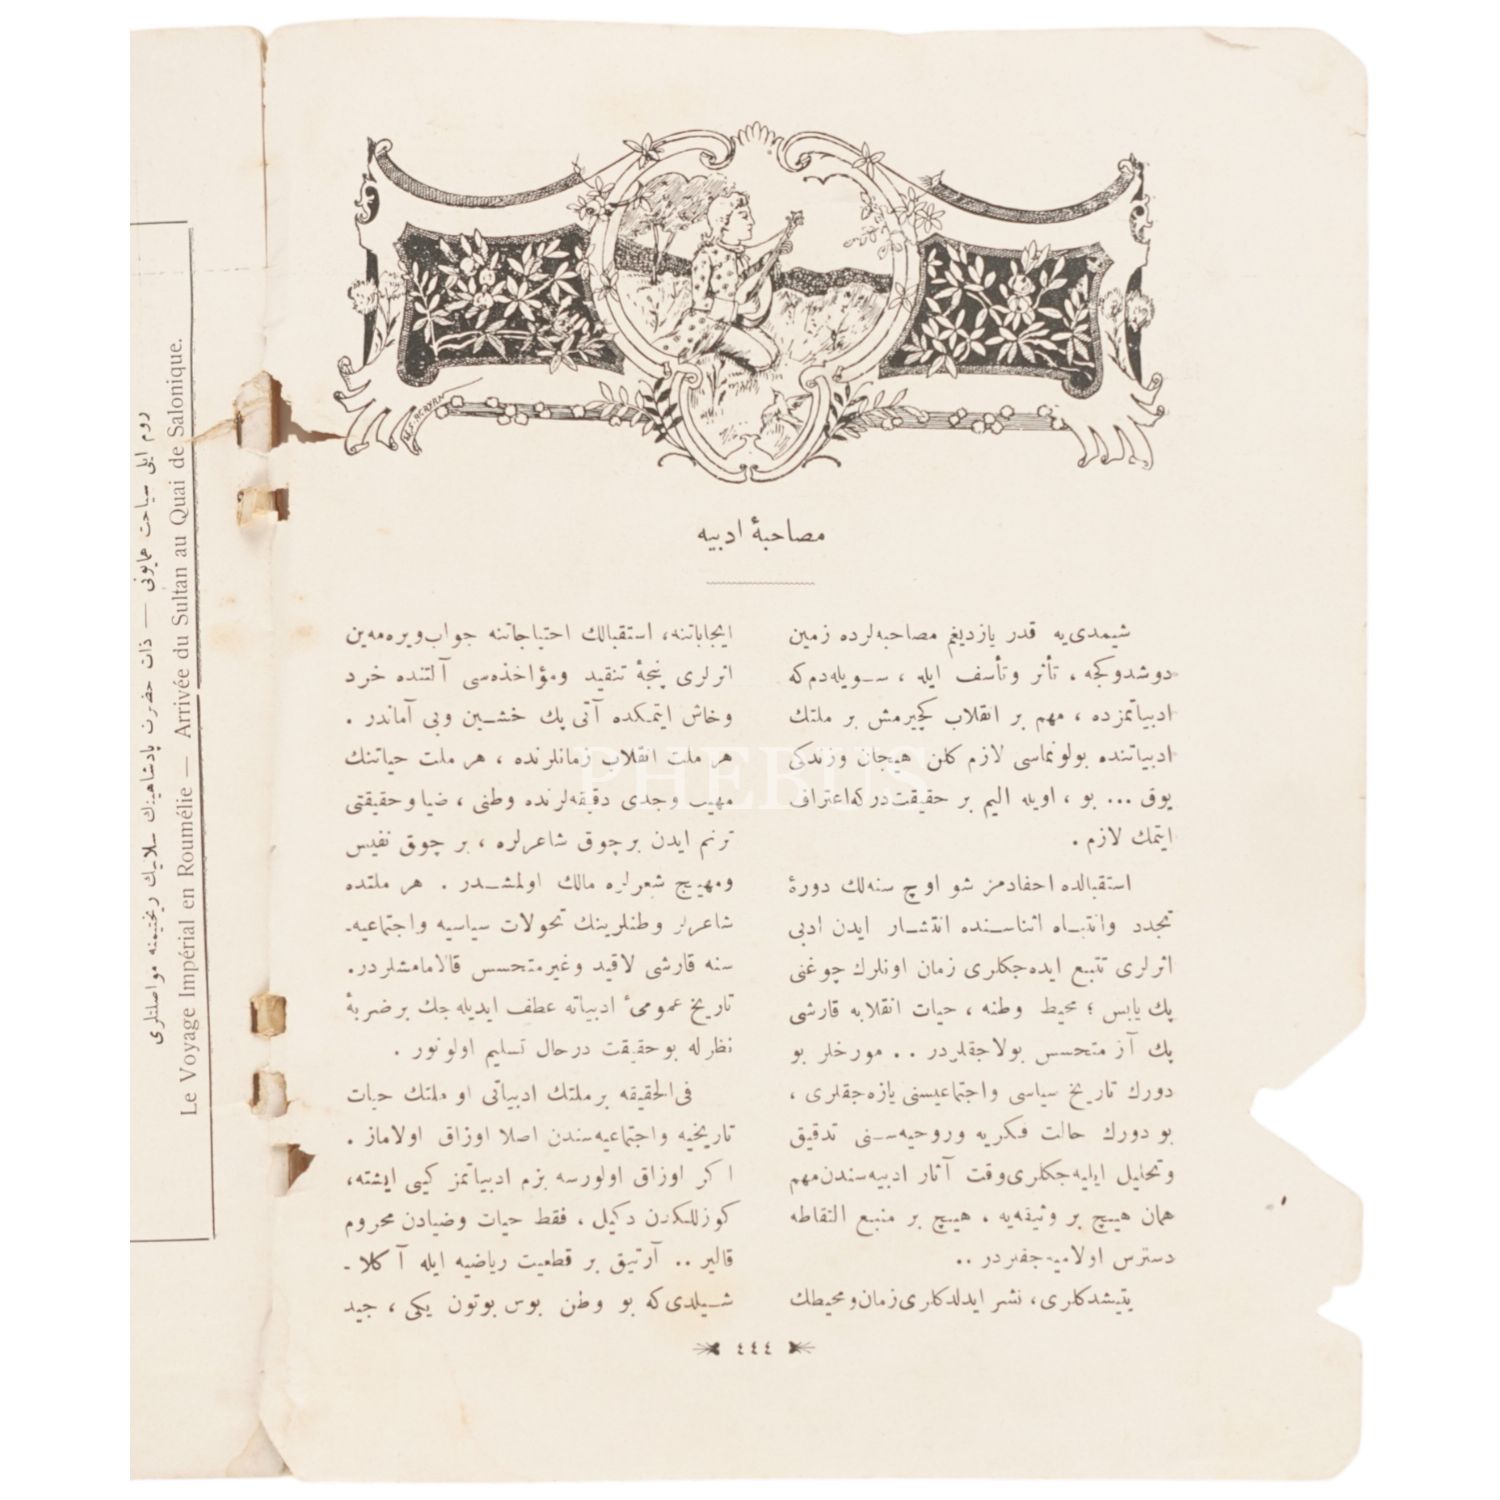 مصاحبهٔ ادبیه
شیمدی‌یه قدر یازدیغم مصاحبه‌لرده زمین
دوشدوکجه ، تأثر وتأسف ایله ، سویله‌دم‌که
ادبیاتمزده ، مهم بر انقلاب کچیرمش بر ملتك
ادبیاتنده بولونماسی لازم کلن هیجان وزندکی
یوق ... بو ، اویله الیم بر حقیقت‌در که اعتراف
ایتمك لازم .
استقبالده احفادمز شو اوچ سنه‌لك دورهٔ
تجدد وانتباه اثناسنده انتشار ایدن ادبی
اثرلری تتبع ایده‌جکلری زمان اونلرك چوغنی
پك یابس ؛ محیط وطنه ، حیات انقلابه قارشی
پك آز متحسس بولاجقلردر .. مورخلر بو
دورك تاریخ سیاسی واجتماعیسنی یازه‌جقلری ،
بو دورك حالت فکریه وروحیه‌سنی تدقیق
وتحلیل ایلیه‌جکلری وقت آثار ادبیه‌سندن مهم
همان هیچ بر وثیقه‌یه ، هیچ بر منبع التقاطه
دسترس اولامیه‌جقلردر ..
یتیشدکلری، نشر ایدلدکلری زمان ومحیطك
ایجاباتنه، استقبالك احتیاجاتنه جواب ویره‌مه‌ین
اثرلری پنجهٔ تنقید ومؤاخذه‌سی آلتنده خرد
وخاش ایتمکده آتی پك خشین وبی آماندر .
هر ملت انقلاب زمانلرنده ، هر ملت حیاتنك
مهیب وجدی دقیقه‌لرنده وطنی ، ضیا وحقیقتی
ترنم ایدن برچوق شاعرلره ، بر چوق نفیس
ومهیج شعرلره مالك اولمشدر . هر ملتده
شاعرلر وطنلرینك تحولات سیاسیه واجتماعیه-
سنه قارشی لاقید وغیرمتحسس قالامامشلردر.
تاریخ عمومیٔ ادبیاته عطف ایدیله جك برضربهٔ
نظرله بوحقیقت درحال تسلیم اولونور .
فی‌الحقیقه برملتك ادبیاتی او ملتك حیات
تاریخیه واجتماعیه‌سندن اصلا اوزاق اولاماز .
اکر اوزاق اولورسه بزم ادبیاتمز کیبی ایشته،
کوزللکدن دکیل ، فقط حیات وضیادن محروم
قالیر .. آرتیق بر قطعیت ریاضیه ایله آکلا-
شیلدی‌که بو وطن بوس بوتون یکی ، جید
٤٤٤
روم ایلی سیاحت همایونی — ذات حضرت پادشاهینك سلانیك ریختیمنه مواصلتلری
Le Voyage Impérial en Roumélie — Arrivée du Sultan au Quai de Salonique.
PHEBUS